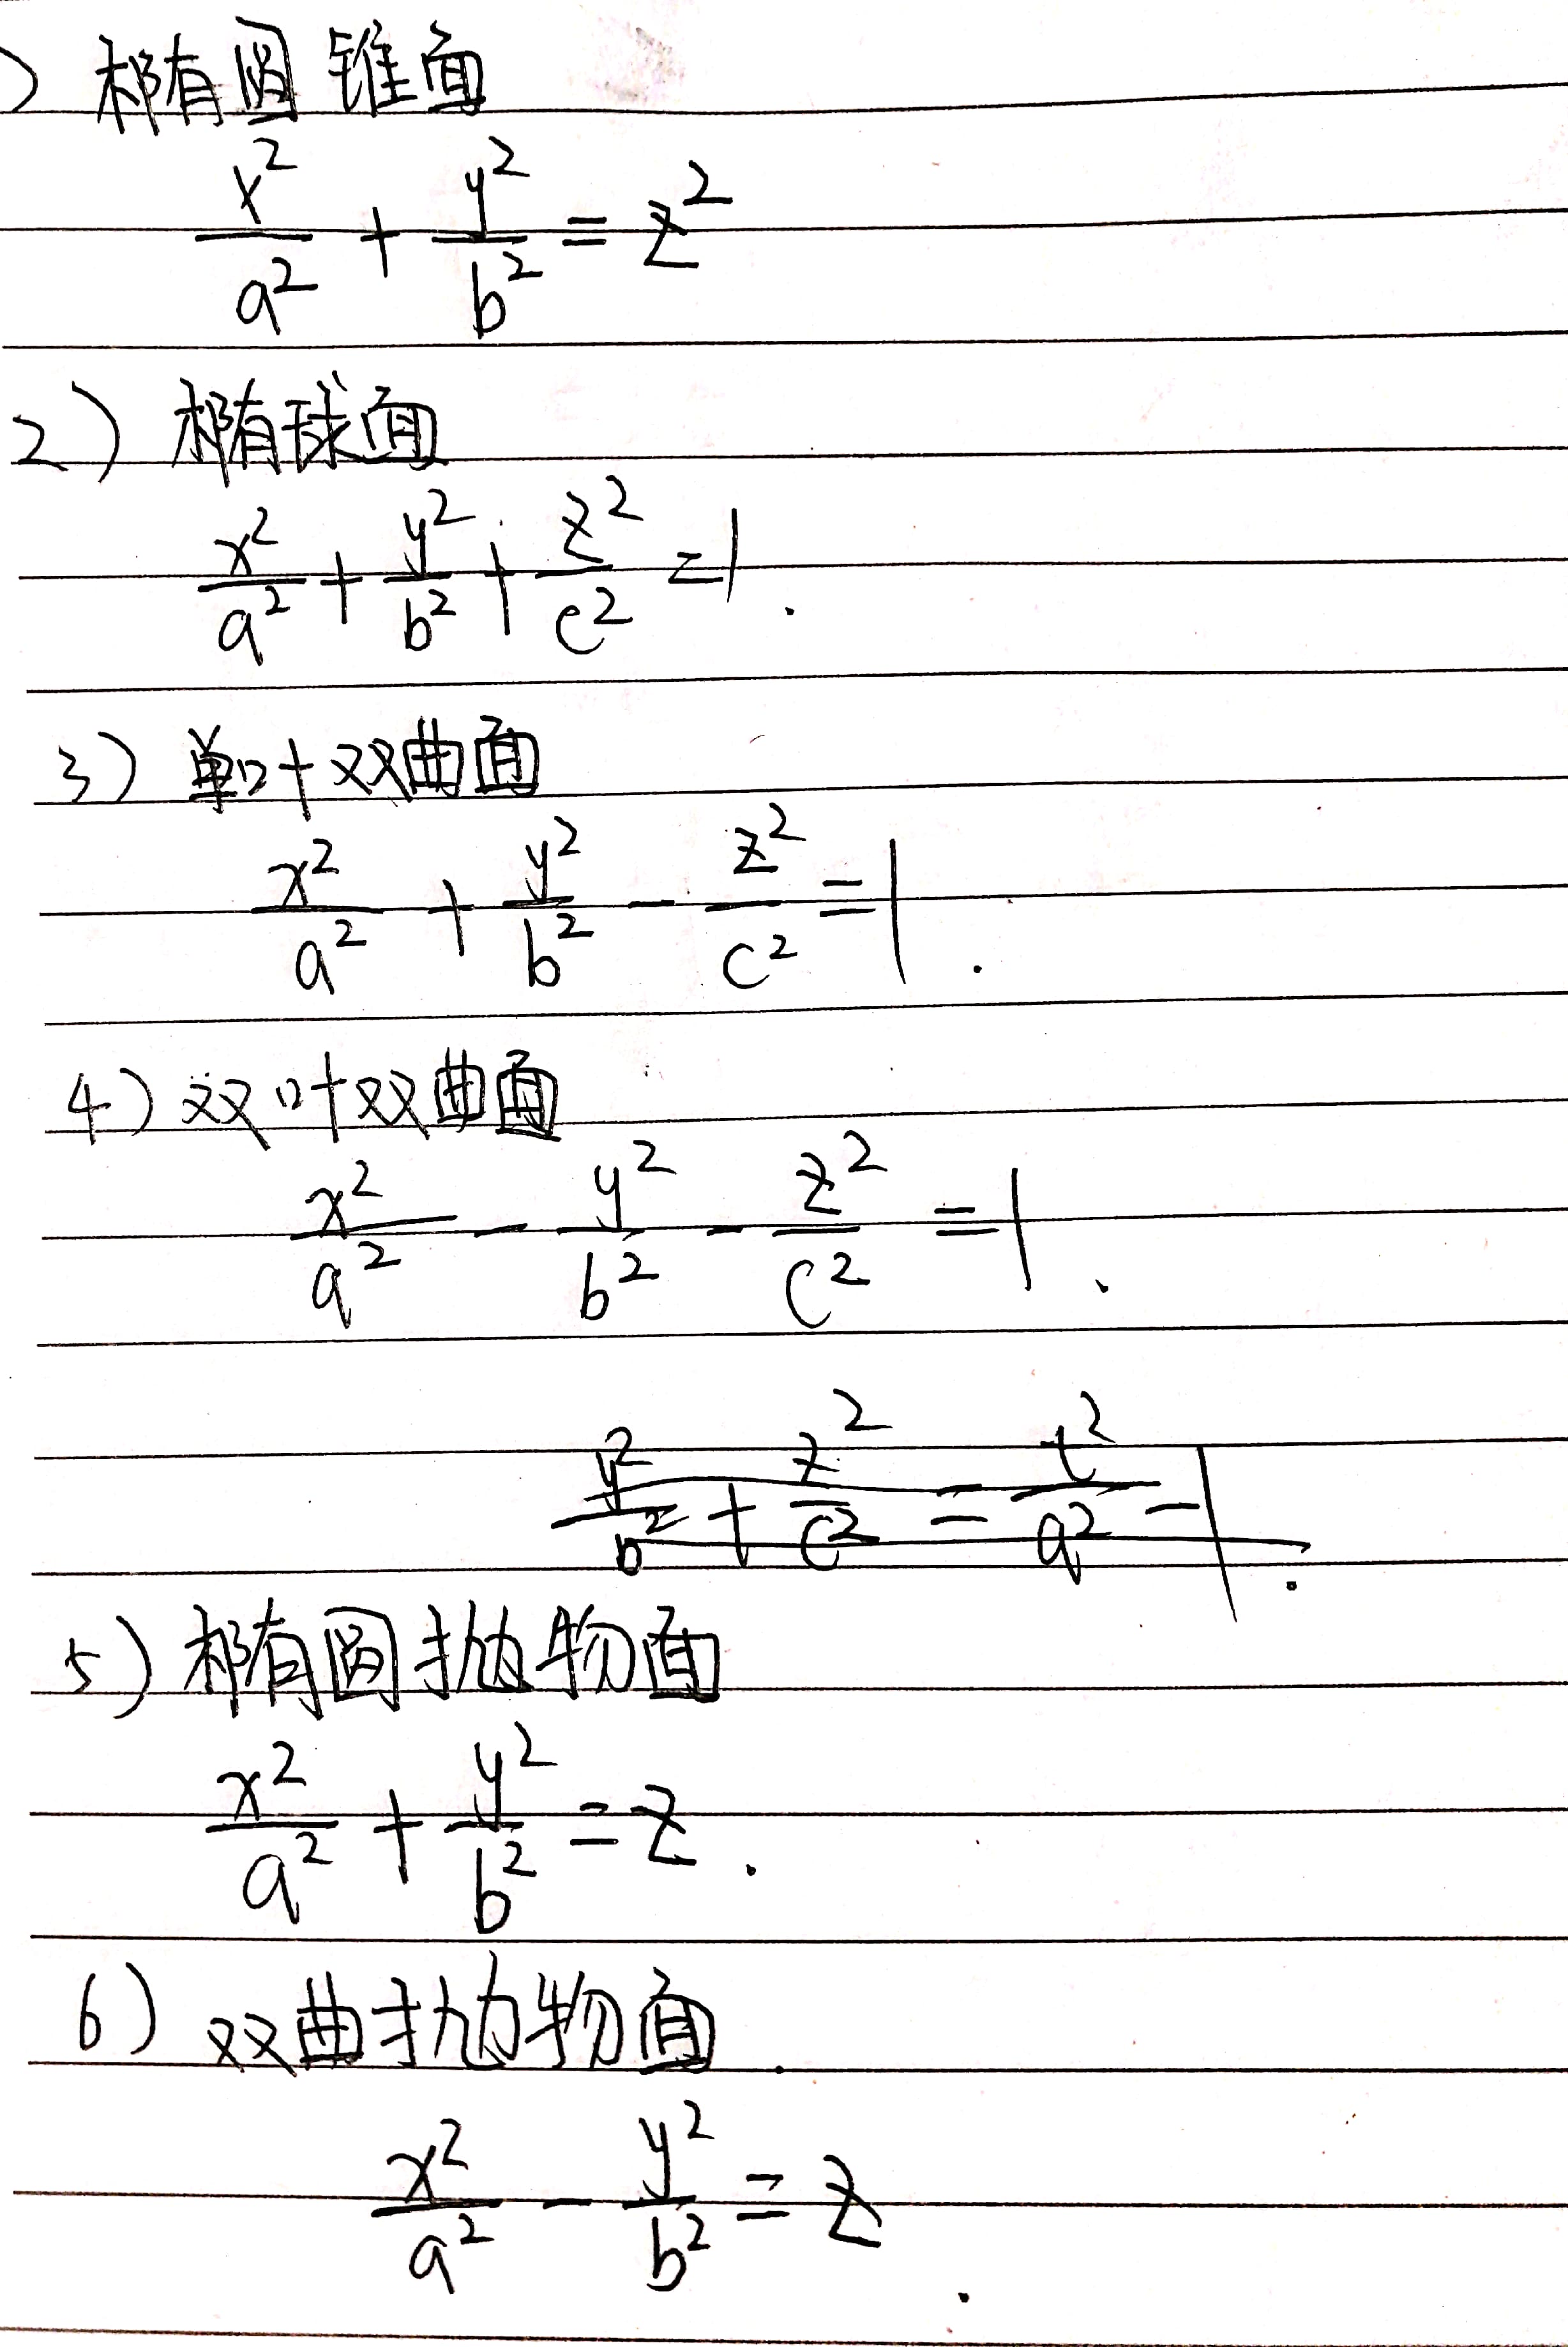 ) 椭圆锥面
x²/a² + y²/b² = z²
2) 椭球面
x²/a² + y²/b² + z²/c² = 1.
3) 单叶双曲面
x²/a² + y²/b² - z²/c² = 1.
4) 双叶双曲面
x²/a² - y²/b² - z²/c² = 1.
y²/b² + z²/c² = x²/a² - 1.
5) 椭圆抛物面
x²/a² + y²/b² = z.
6) 双曲抛物面.
x²/a² - y²/b² = z.